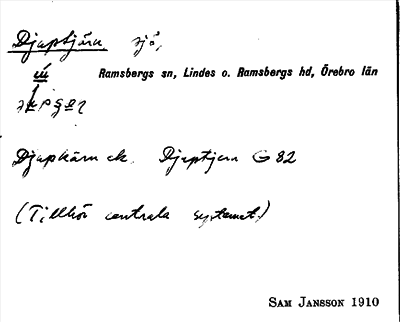 Djuptjärn sjö,
Ramsbergs sn, Lindes o. Ramsbergs hd, Örebro län
Djupkärn ek. Djuptjern G 82
(Tillhör centrala systemet.)
SAM JANSSON 1910